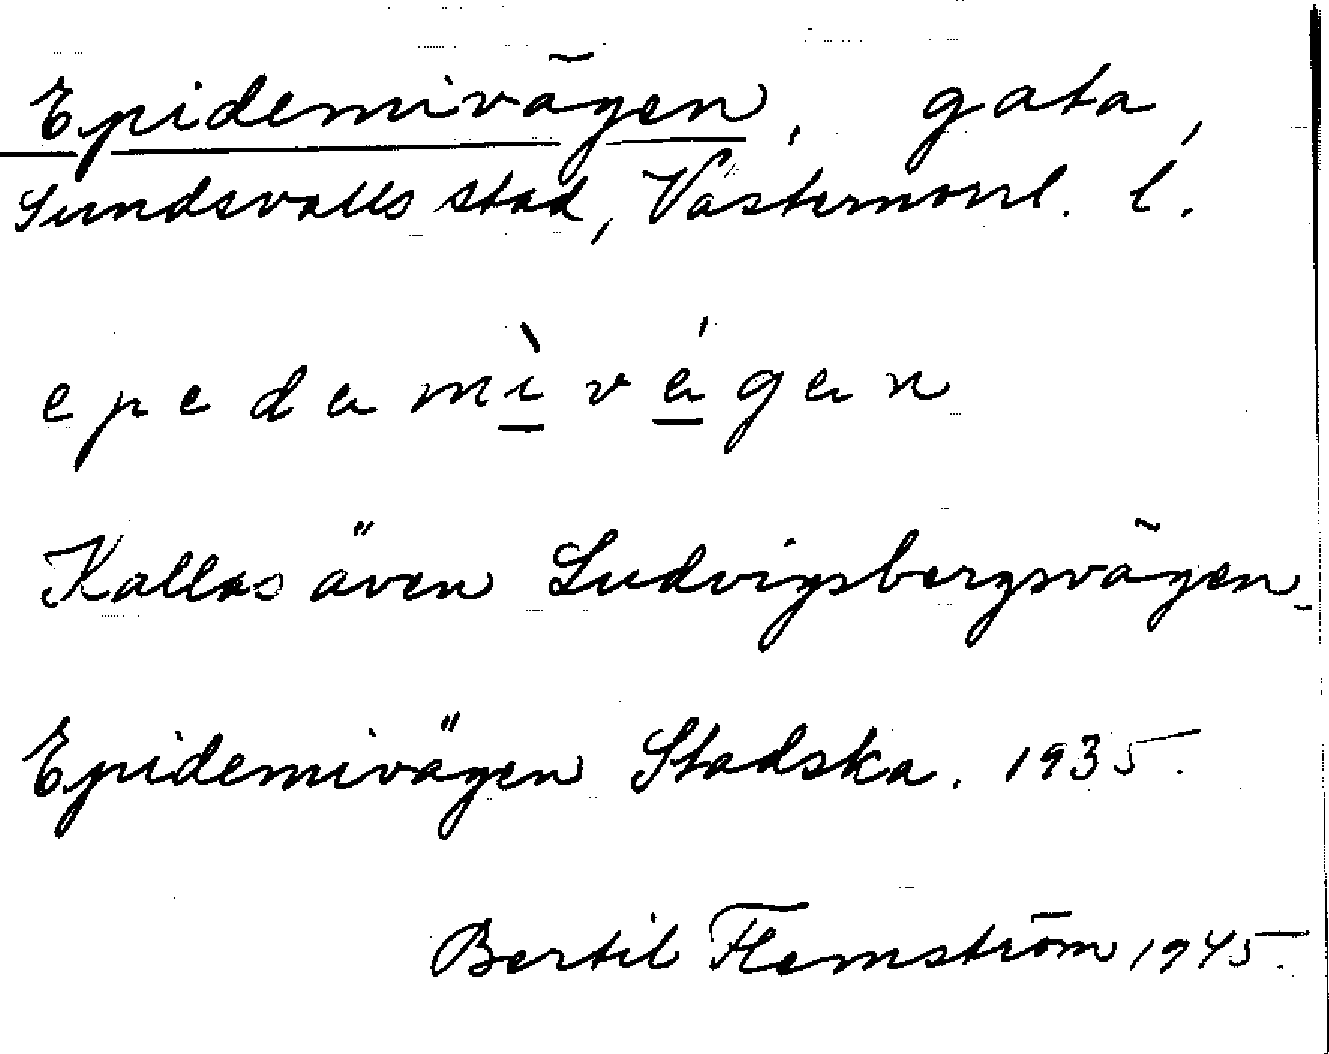 Epidemivägen, gata,
Sundsvalls stad, Västernorrl. l.
epedemìvágen
Kallas även Ludvigsbergsvägen.
Epidemivägen Stadska. 1935.
Bertil Flemström 1945.